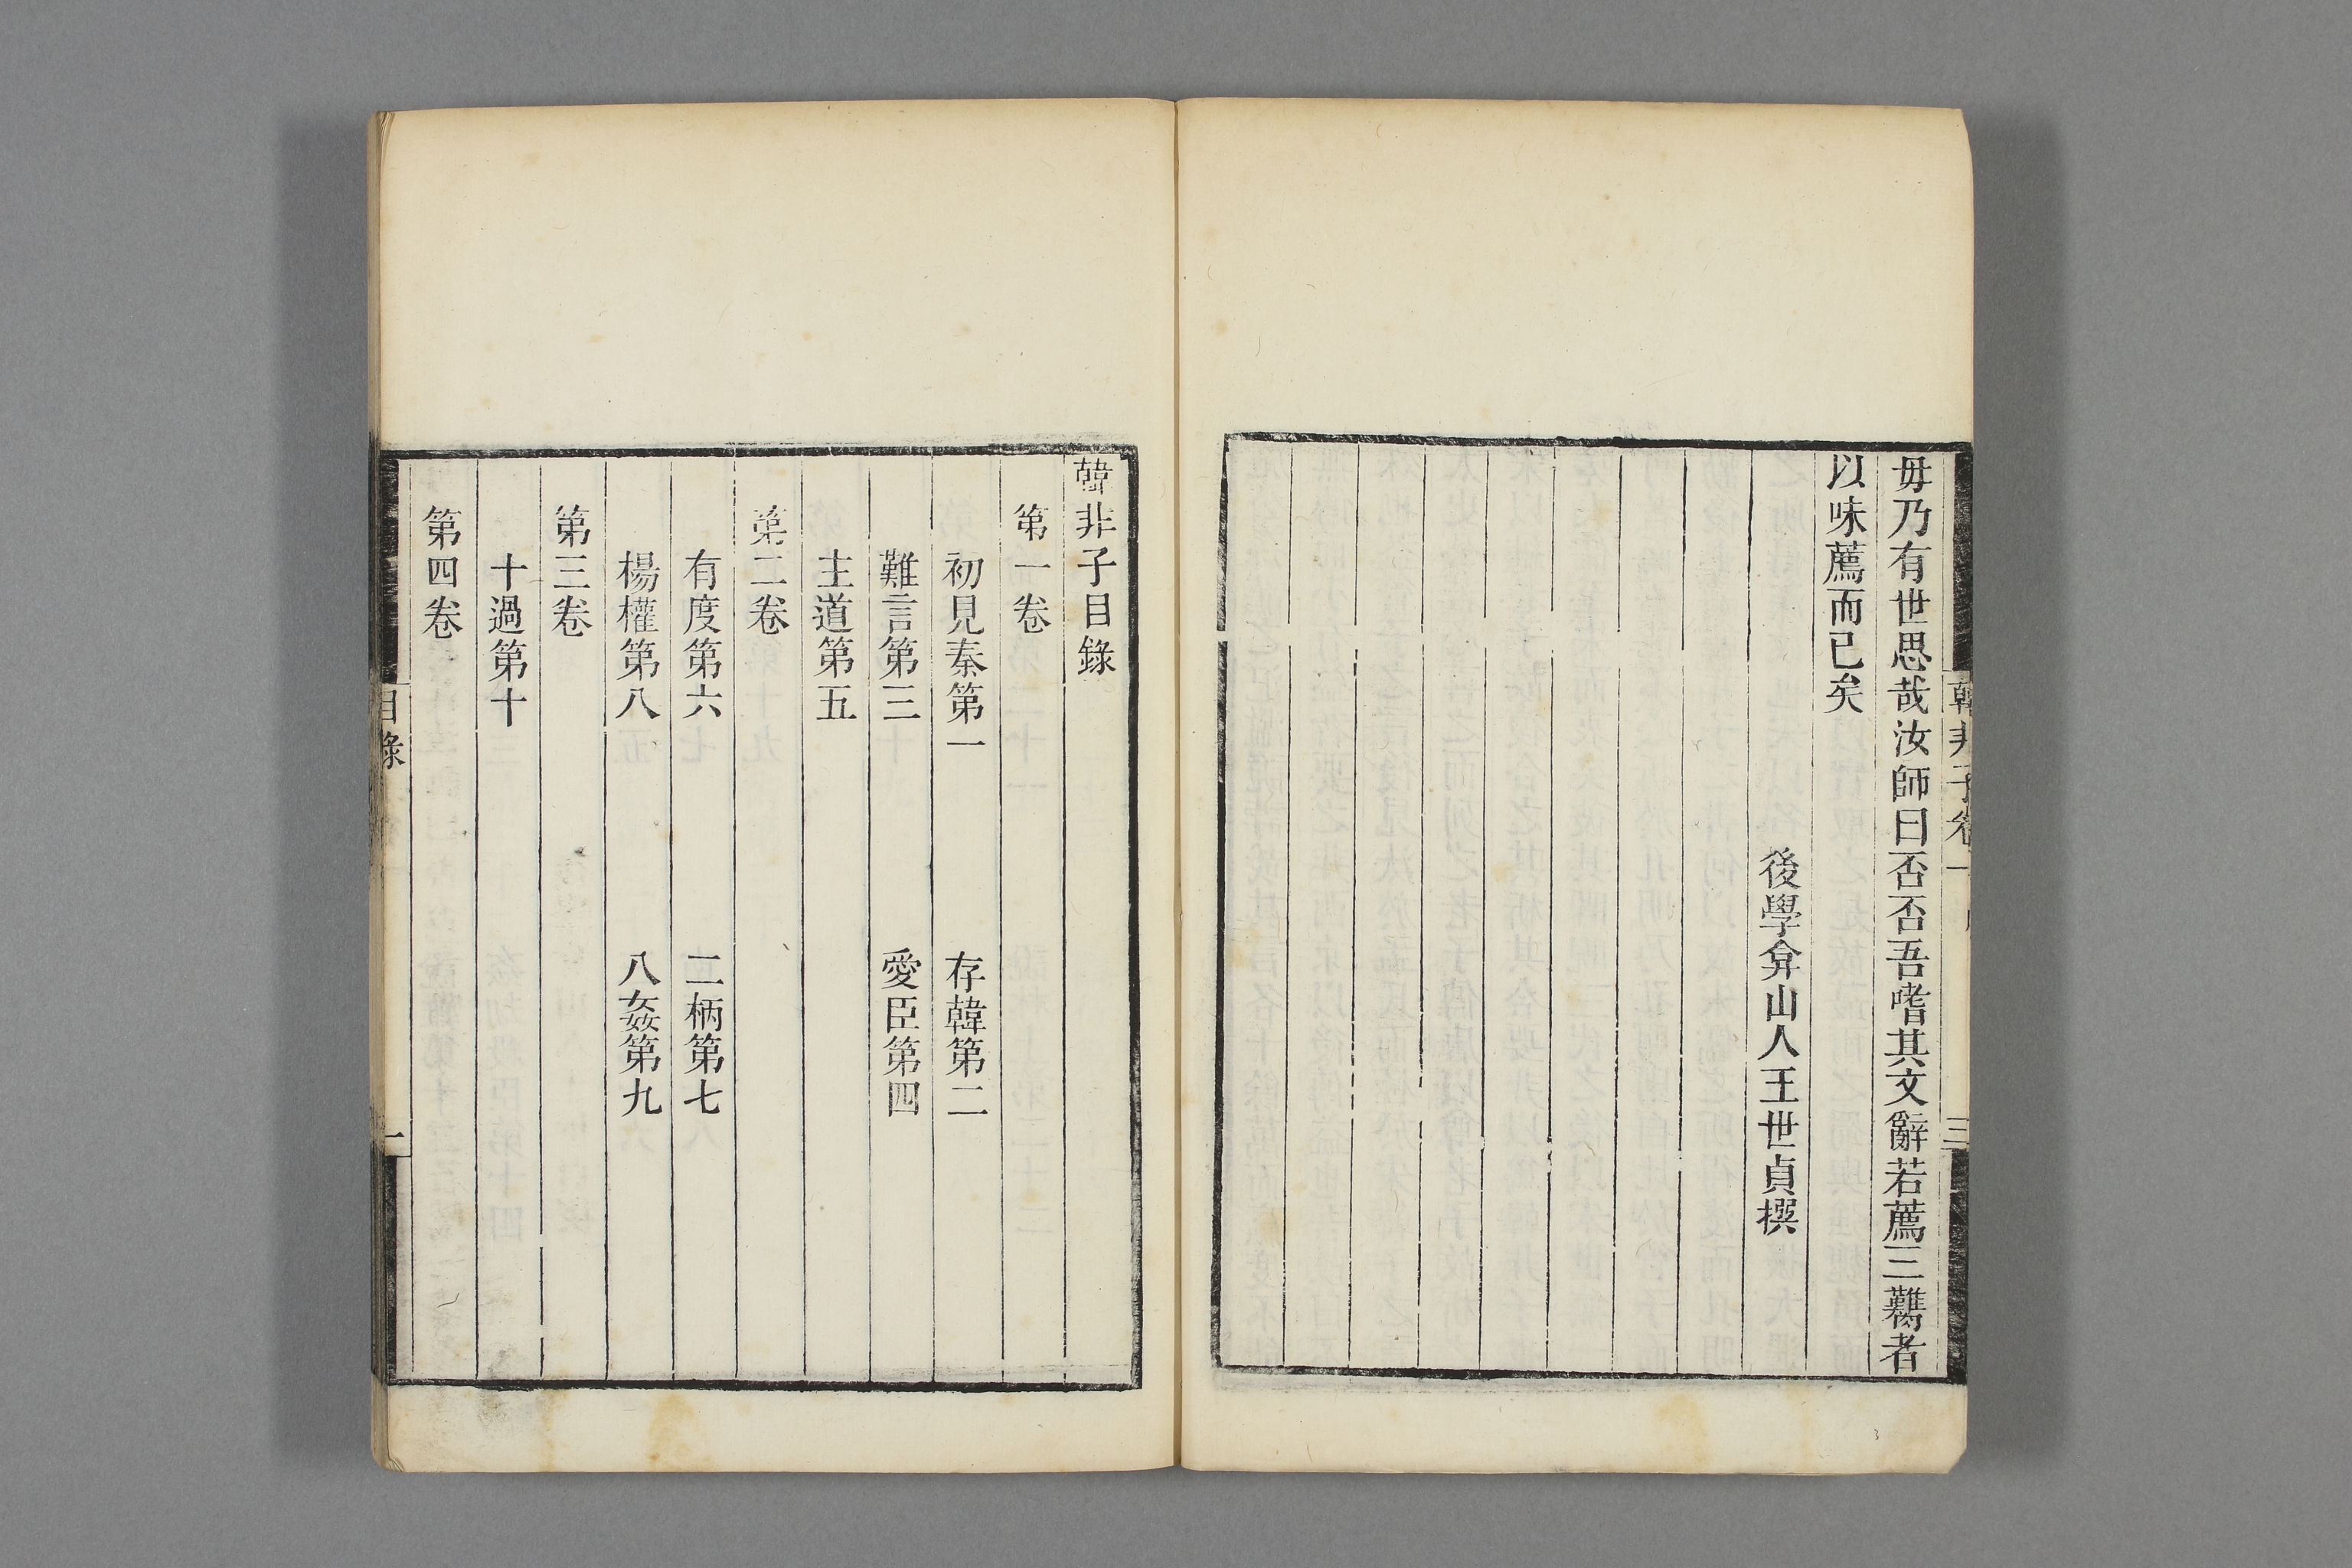 毋乃有世思哉汝師曰否否吾嗜其文辭若薦三臡者
以味薦而已矣
後學弇山人王世貞撰
韓非子目錄
第一卷
初見秦第一 存韓第二
難言第三 愛臣第四
主道第五
第二卷
有度第六 二柄第七
楊權第八 八姦第九
第三卷
十過第十
第四卷
目錄 一